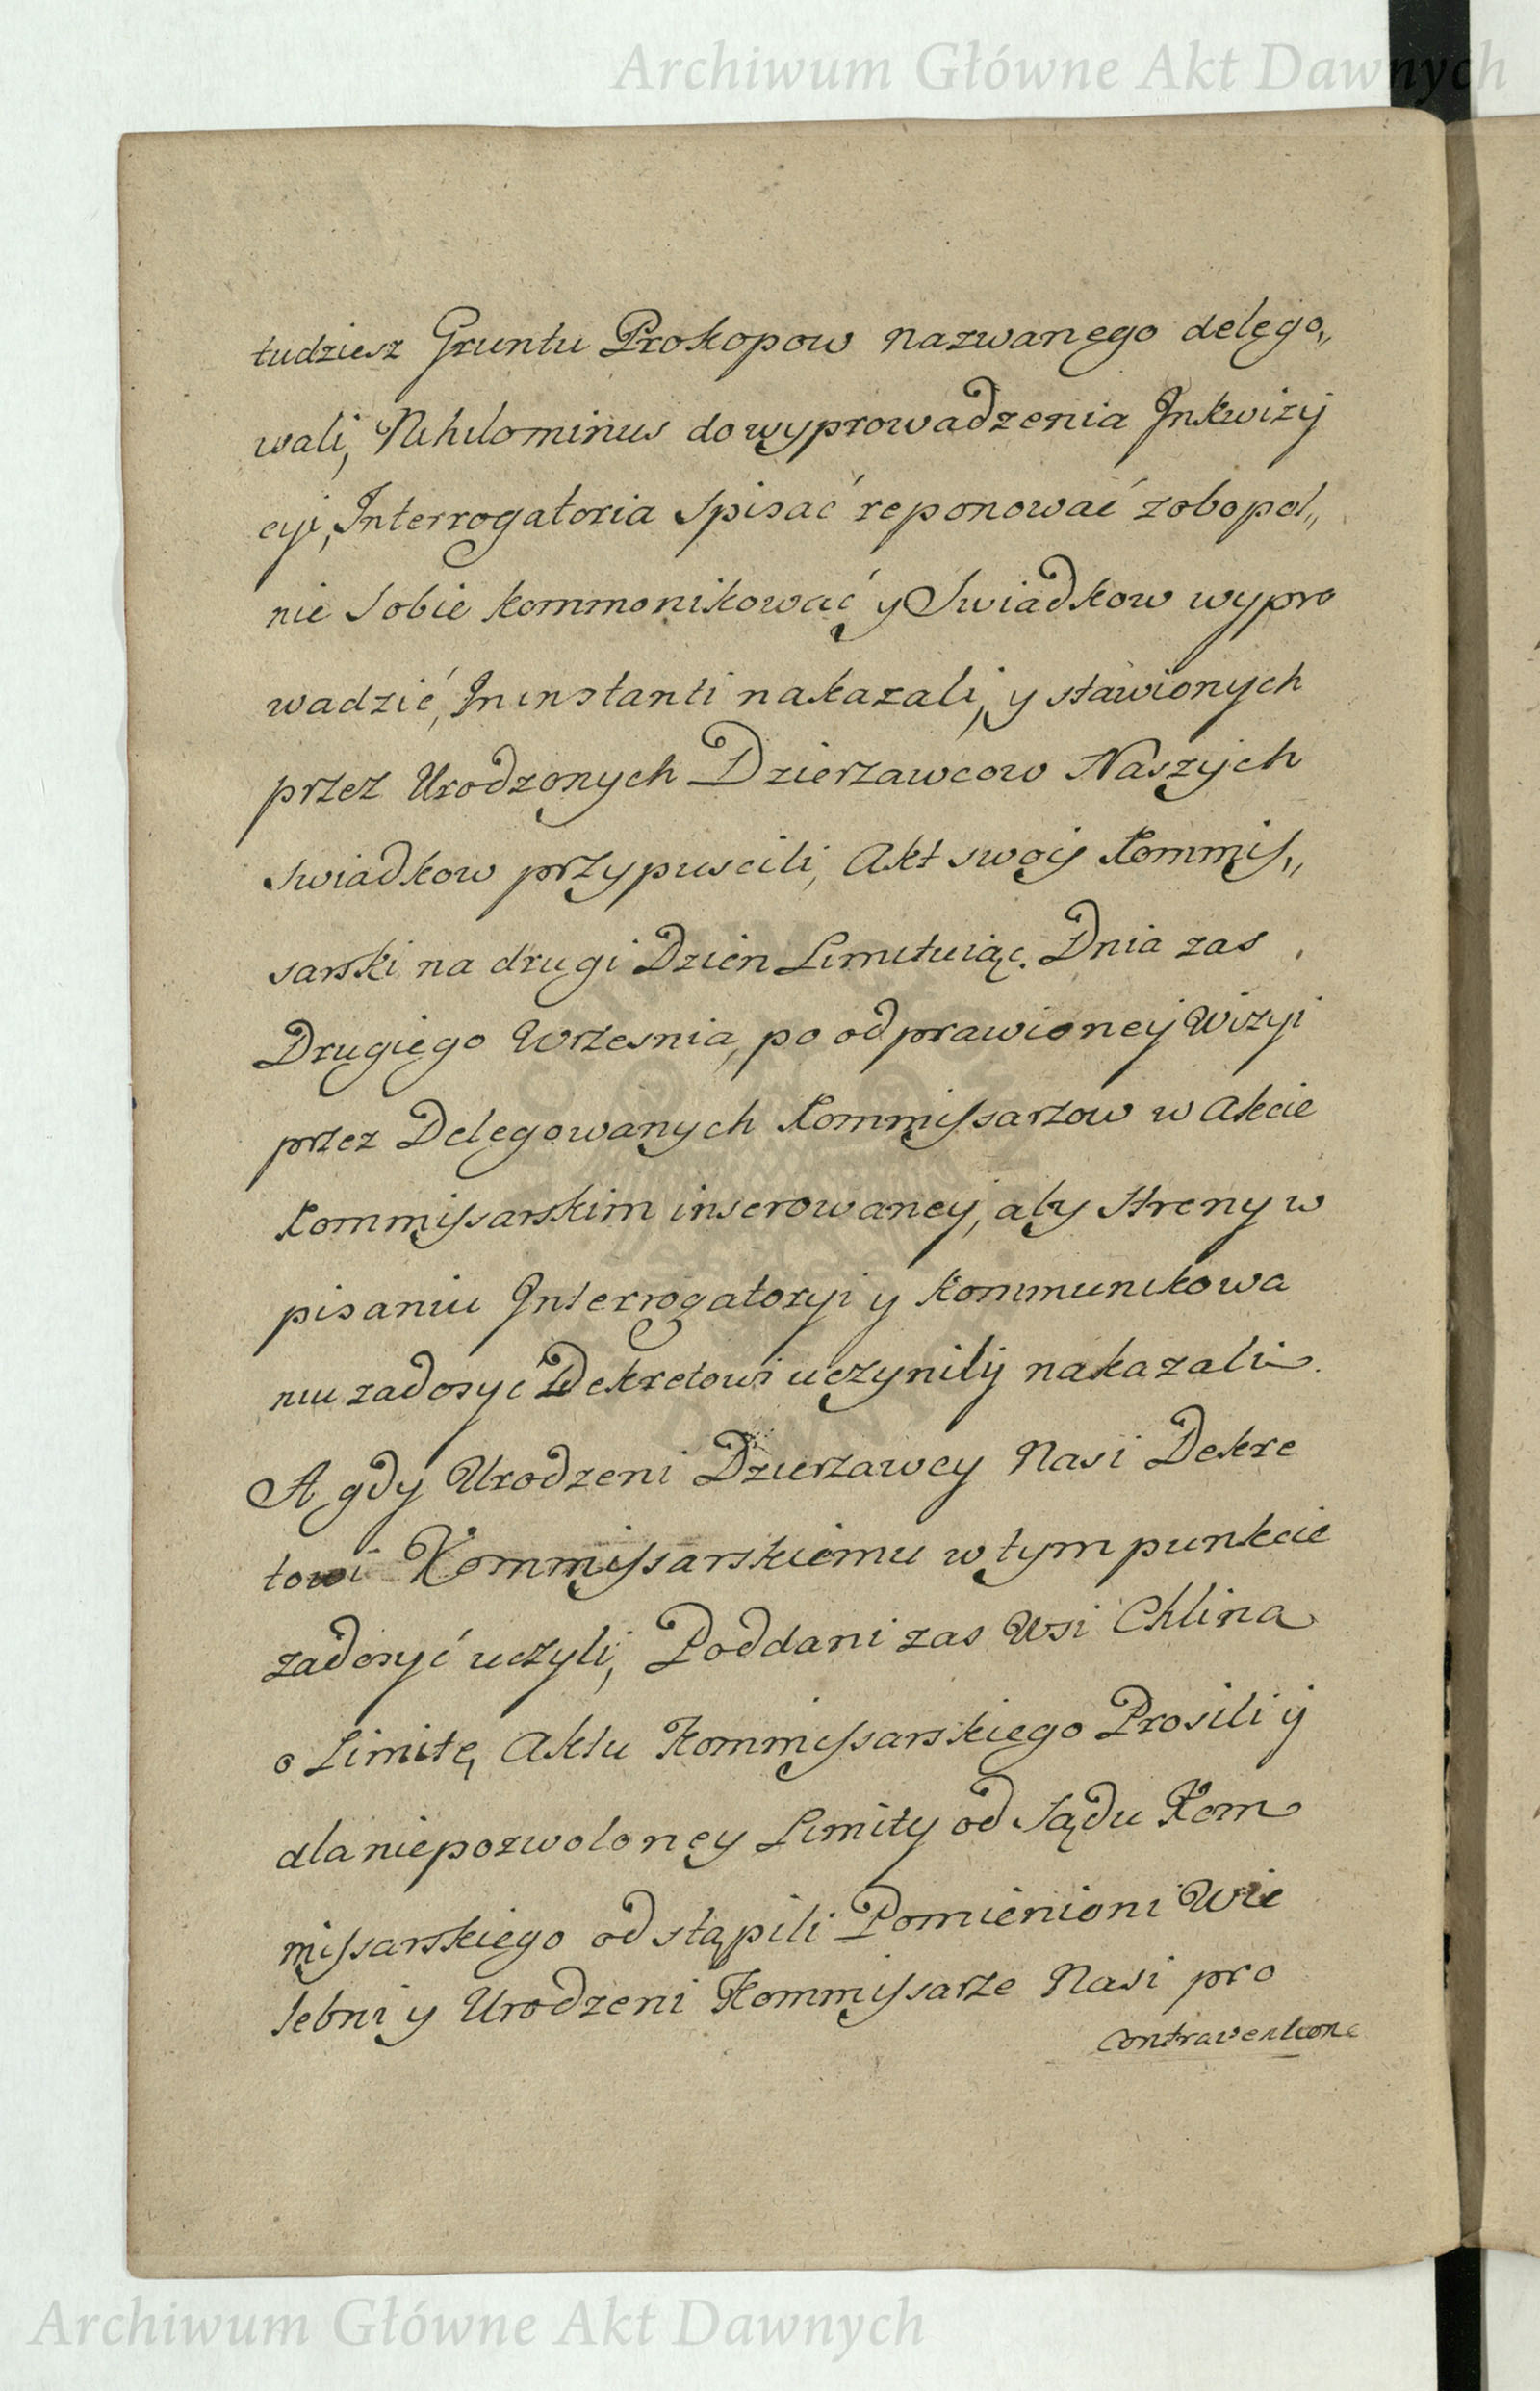 Archiwum Główne Akt Dawnych
tudziesz Gruntu Prokopow nazwanego delego„
wali, Nihilominus do wyprowadzenia Inkwizy
cyi, Interrogatoria spisać reponować zobopol„
nie sobie kommonikować y Swiadkow wypro
wadzić, In instanti nakazali, y stawionych
przez Urodzonych Dzierzawcow Naszych
swiadkow przypuscili, Akt swoy Kommis„
sarski na drugi Dzien Limituiąc. Dnia zas
Drugiego Wrzesnia, po odprawioney Wizyi
przez Delegowanych Kommissarzow w Akcie
Kommissarskim inserowaney, aby Streny w
pisaniu Interrogatoryi y Kommunikowa
niu zadosyc Dekretowi uczynily nakazali.
A gdy Urodzeni Dzierzawcy Nasi Dekre
towi Kommissarskiemu w tym punkcie
zadosyć uczyli, Poddani zas Wsi Chlina
o Limitę Aktu Kommissarskiego Prosili y
dla niepozwoloney Limity od Sądu Kom
missarskiego odstąpili Pomienioni Wie
lebni y Urodzeni Kommissarze Nasi pro
contraventione
Archiwum Główne Akt Dawnych